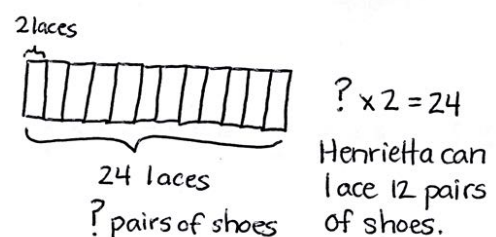 2laces
24 laces
? pairs of shoes
? x 2 = 24
Henrietta can
lace 12 pairs
of shoes.